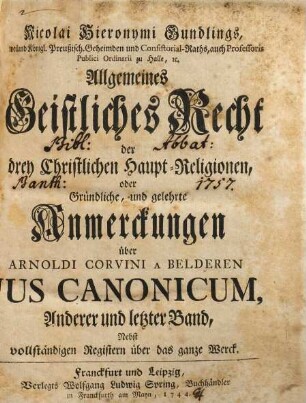 Nicolai Hieronymi Gundlings,
weiland Königl. Preußisch. Geheimden und Consistorial-Raths, auch Professoris
Publici Ordinarii zu Halle, ꝛc.
Allgemeines
Geistliches Recht
Bibl: der Abbat:
drey Christlichen Haupt-Religionen,
Banth: oder 1757.
Gründliche, und gelehrte
Anmerckungen
über
ARNOLDI CORVINI A BELDEREN
JUS CANONICUM,
Anderer und letzter Band,
Nebst
vollständigen Registern über das ganze Werck.
Franckfurt und Leipzig,
Verlegts Wolfgang Ludwig Spring, Buchhändler
in Franckfurth am Mayn, 174